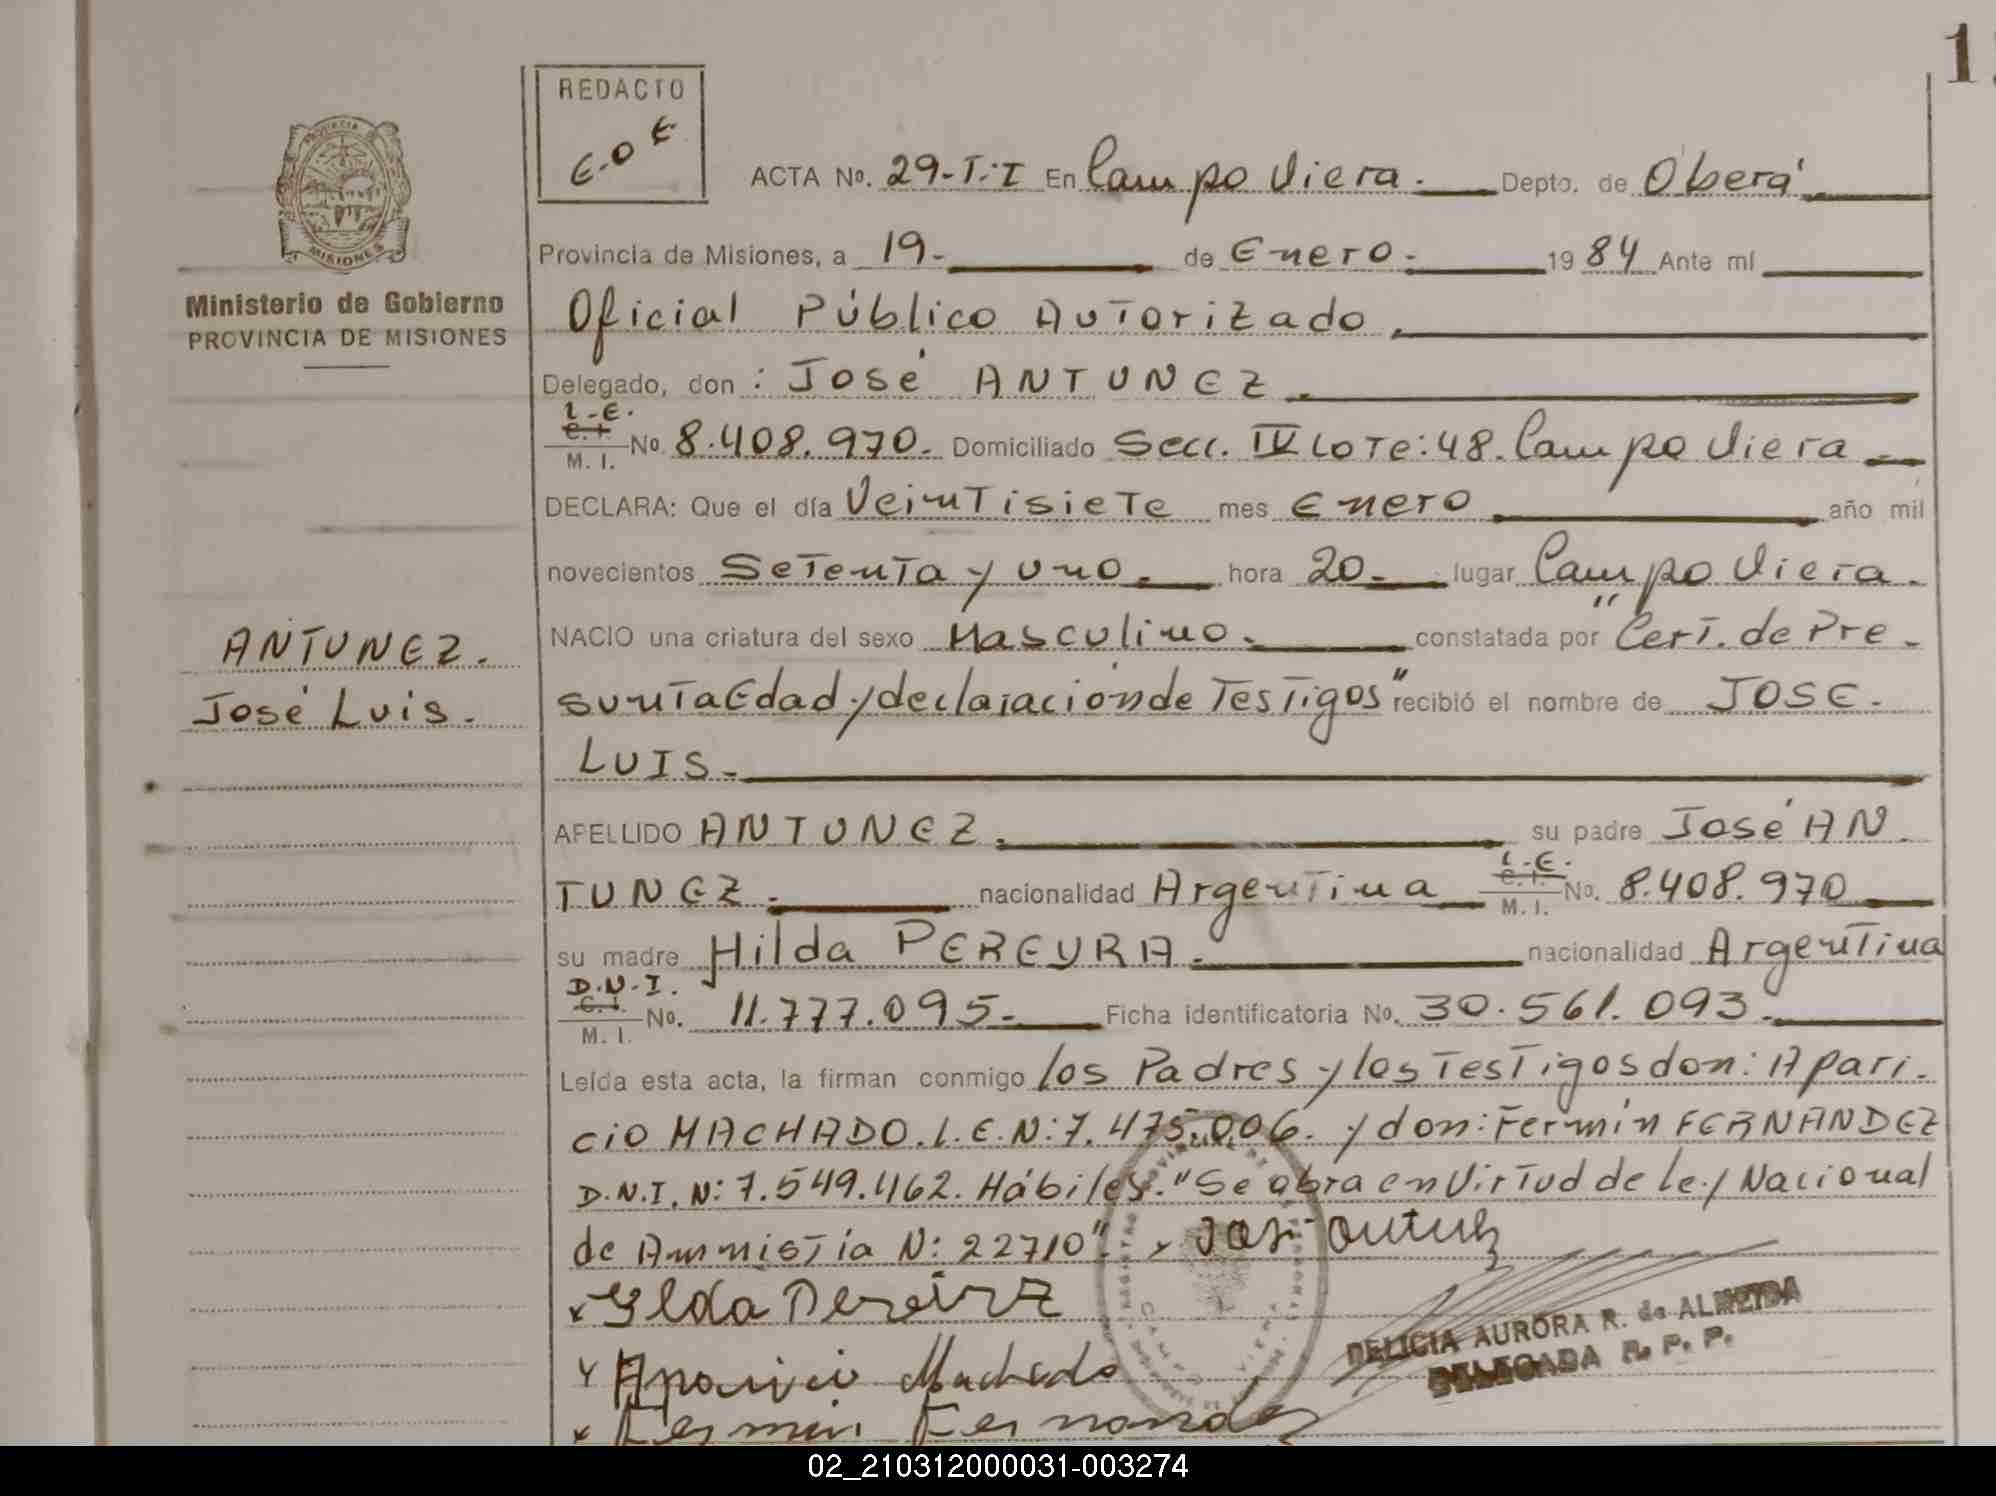 1
REDACTO
E.O.E
ACTA No. 29-T.I En Campo Viera. Depto. de Oberá
Provincia de Misiones, a 19- de Enero. 1984 Ante mí
Ministerio de Gobierno
PROVINCIA DE MISIONES
Oficial Público Autorizado.
Delegado, don: José ANTUNEZ.
L.E.
C.I.
M. I.
No. 8.408.970. Domiciliado Secc. IV Lote: 48. Campo Viera
DECLARA: Que el día Veintisiete mes Enero año mil
novecientos Setenta y uno. hora 20. lugar Campo Viera.
ANTUNEZ.
José Luis.
NACIO una criatura del sexo Masculino. constatada por "Cert. de Pre-
sunta Edad y declaración de Testigos" recibió el nombre de JOSE.
LUIS.
APELLIDO ANTUNEZ. su padre José AN-
TUNEZ. nacionalidad Argentina L.E. C.I. M. I. No. 8.408.970
su madre Hilda PEREYRA. nacionalidad Argentina
D.N.I.
C.I.
M. I.
No. 11.777.095. Ficha identificatoria No. 30.561.093.
Leída esta acta, la firman conmigo los Padres y los Testigos don: Apari-
cio MACHADO. L.E.N: 7.475.006. y don: Fermín FERNANDEZ
D.N.I. N: 7.549.462. Hábiles. "Se obra en Virtud de ley Nacional
de Ammistía N: 22710".
Ylda Pereira
DELICIA AURORA R. de ALMEIDA
DELEGADA R. P. P.
Aparicio Machado
Fermin Fernandez
02_210312000031-003274